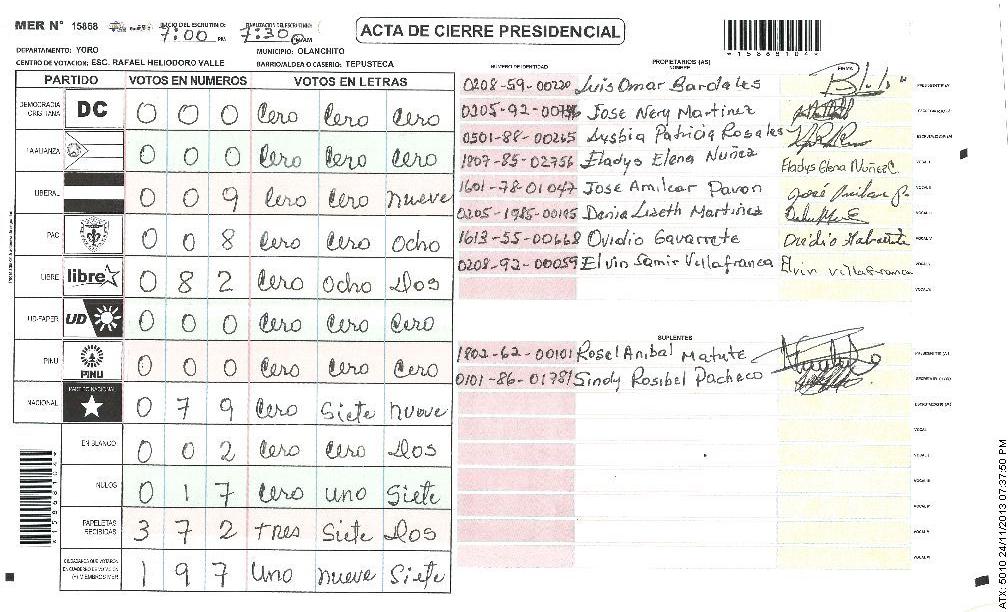 MER N° 15868 INICIO DEL ESCRUTINIO: 7:00 PM FINALIZACION DEL ESCRUTINIO: 7:30 AM
ACTA DE CIERRE PRESIDENCIAL
DEPARTAMENTO: YORO MUNICIPIO: OLANCHITO
CENTRO DE VOTACION: ESC. RAFAEL HELIODORO VALLE BARRIO/ALDEA O CASERIO: TEPUSTECA
PARTIDO VOTOS EN NUMEROS VOTOS EN LETRAS
DEMOCRACIA CRISTIANA DC 0 0 0 Cero Cero Cero
LA ALIANZA 0 0 0 Cero Cero Cero
LIBERAL 0 0 9 Cero Cero nueve
PAC 0 0 8 Cero Cero Ocho
LIBRE libre 0 8 2 Cero Ocho Dos
UD-FAPER UD 0 0 0 Cero Cero Cero
PINU PINU 0 0 0 Cero Cero Cero
NACIONAL PARTIDO NACIONAL 0 7 9 Cero Siete nueve
EN BLANCO 0 0 2 Cero Cero Dos
NULOS 0 1 7 Cero uno Siete
PAPELETAS RECIBIDAS 3 7 2 tres Siete Dos
CIUDADANOS QUE VOTARON EN CUADERNO DE VOTACION (+) MIEMBROS MER 1 9 7 Uno nueve Siete
NUMERO DE IDENTIDAD PROPIETARIOS (AS) NOMBRE FIRMA
0208-59-00220 Luis Omar Bardales
0205-92-00796 Jose Nery Martinez
0501-88-00265 Lysbia Patricia Rosales
1807-85-02756 Eladys Elena Nuñez Eladys Elena Nuñez C.
1601-78-01047 Jose Amilcar Pavon
0205-1985-00195 Denia Lizeth Martinez
1613-55-00668 Ovidio Gavarrete Ovidio Gabarrete
0208-92-00059 Elvin Samir Villafranca Elvin Villafranca
SUPLENTES
1802-62-00101 Rosel Anibal Matute
0101-86-01781 Sindy Rosibel Pacheco
ATX: 5010 24/11/2013 07:37:50 PM